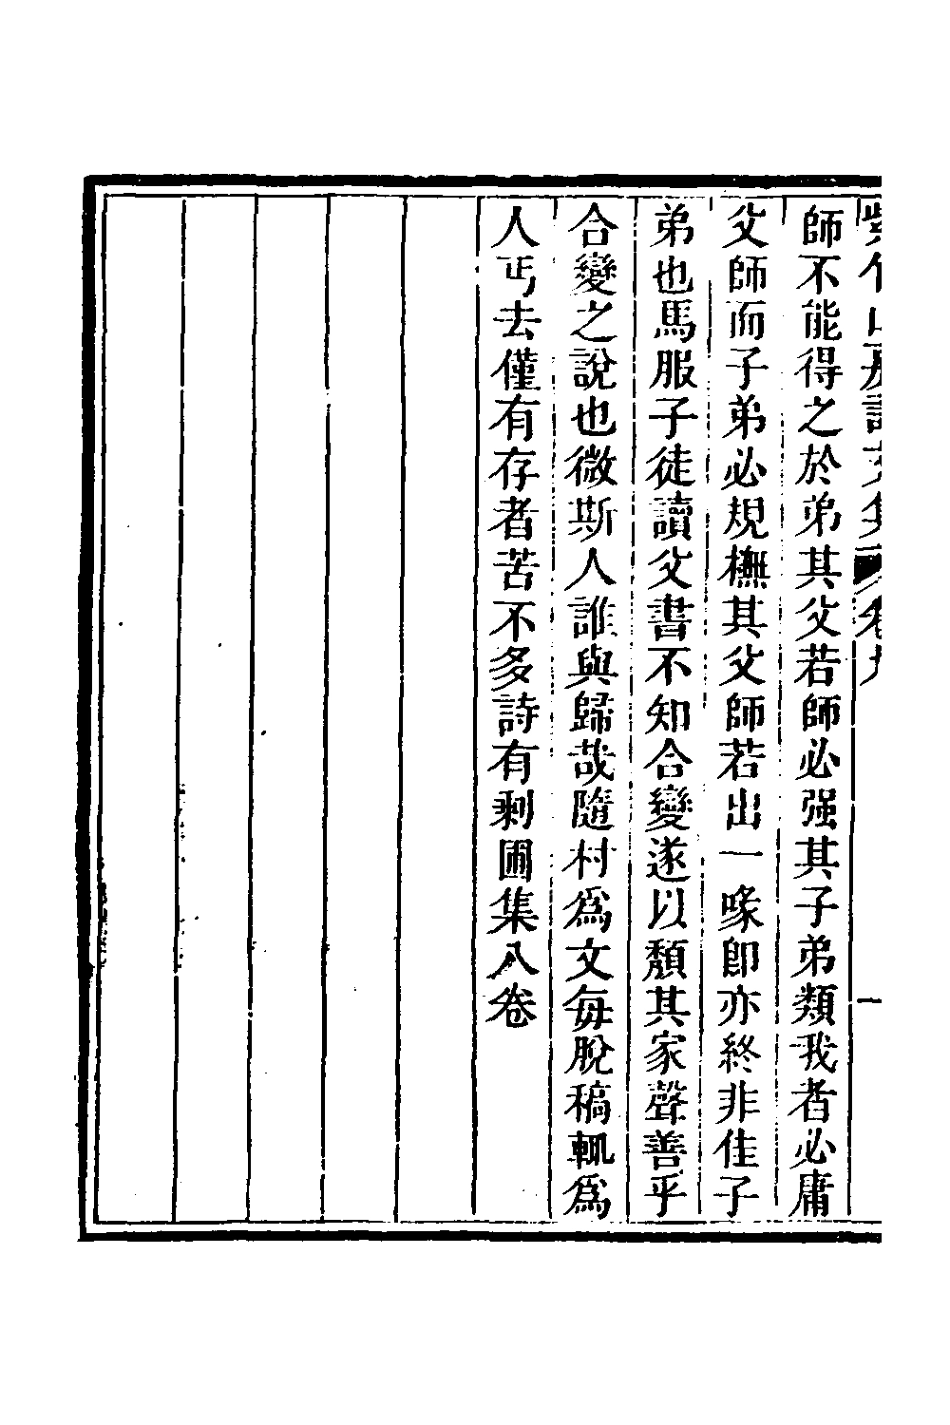 師不能得之於弟其父若師必强其子弟類我者必庸
父師而子弟必規橅其父師若出一喙卽亦終非佳子
弟也馬服子徒讀父書不知合變遂以頽其家聲善乎
合變之說也微斯人誰與歸哉隨村爲文每脫稿輒爲
人丐去僅有存者苦不多詩有剩圃集八卷